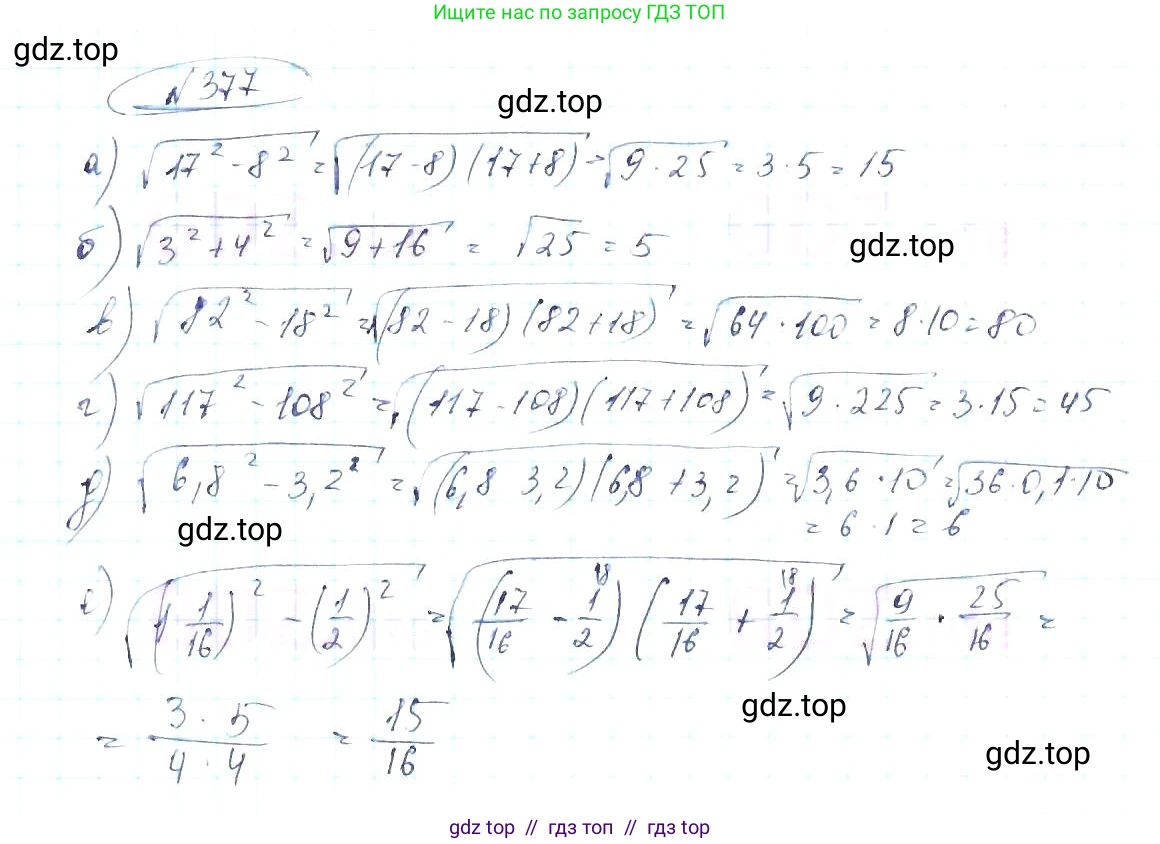 Ищите нас по запросу ГДЗ ТОП
gdz.top
№ 377
gdz.top
а) √(17² - 8²) = √((17-8)(17+8)) = √(9·25) = 3·5 = 15
б) √(3² + 4²) = √(9+16) = √25 = 5
gdz.top
в) √(82² - 18²) = √((82-18)(82+18)) = √(64·100) = 8·10 = 80
г) √(117² - 108²) = √((117-108)(117+108)) = √(9·225) = 3·15 = 45
д) √(6,8² - 3,2²) = √((6,8 3,2)(6,8 + 3,2)) = √(3,6·10) = √(36·0,1·10)
= 6·1 = 6
gdz.top
е) √((1 1/16)² - (1/2)²) = √((17/16 - 1/2 \8)(17/16 + 1/2 \8)) = √(9/16 · 25/16) =
= 3·5/4·4 = 15/16
gdz.top
gdz.top
gdz top // гдз топ // гдз top